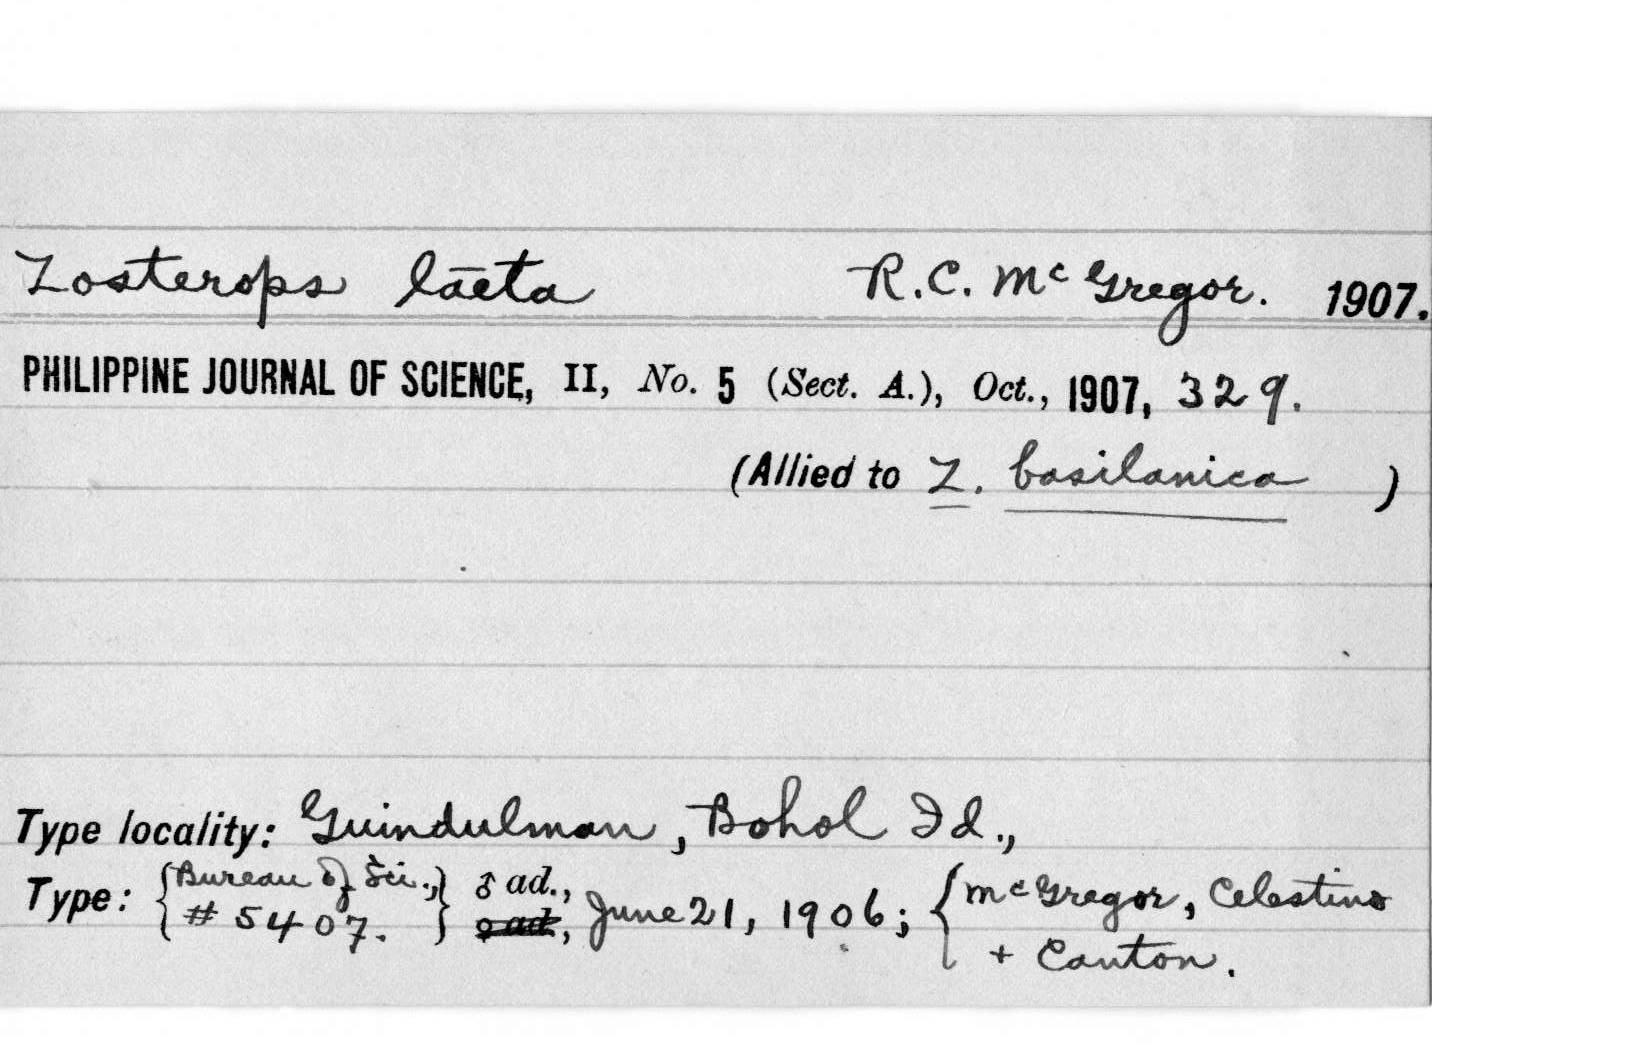 Zosterops lāeta R.C. McGregor. 1907.
PHILIPPINE JOURNAL OF SCIENCE, II, No. 5 (Sect. A.), Oct., 1907, 329.
(Allied to Z. basilanica )
Type locality: Guindulman, Bohol Id.,
Type: {Bureau of Sci., #5407.} ♂ ad., ♀ ad., June 21, 1906; {McGregor, Celestino + Canton.